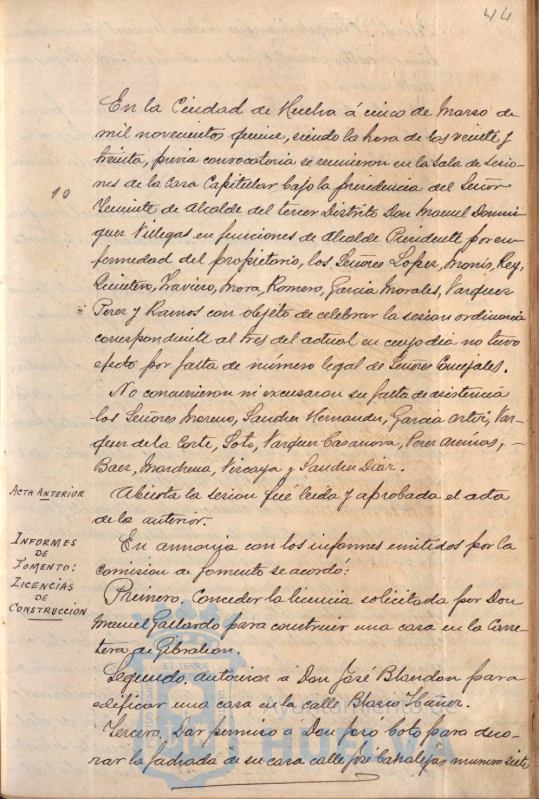 44
En la Ciudad de Huelva á cinco de Marzo de
mil novecientos quince, siendo la hora de las veinte y
treinta, previa convocatoria se reunieron en la Sala de Sesio-
nes de la Casa Capitular, bajo la presidencia del Señor
10
Teniente de Alcalde del tercer Distrito Don Manuel Domin-
guez Villegas en funciones de Alcalde Presidente por en-
fermedad del propietario, los Señores Lopez, Monís, Rey,
Quintero, Traviso, Mora, Romero, Garcia Morales, Vazquez
Perez y Ramos con objeto de celebrar la sesion ordinaria
correspondiente al tres del actual en cuyo dia no tuvo
efecto por falta de número legal de Señores Concejales.
No concurrieron ni excusaron su falta de asistencia
los Señores Moreno, Sanchez Hernandez, Garcia Ortiz, Vaz-
quez de la Corte, Soto, Vazquez Casanova, Perez Arenas,
Baez, Marchena, Vizcaya y Sanchez Diaz.
ACTA ANTERIOR
Abierta la sesion fué leida y aprobada el acta
de la anterior.
INFORMES
DE
FOMENTO:
LICENCIAS
DE
CONSTRUCCIÓN
En armonia con los informes emitidos por la
comision de fomento se acordó:
Primero, Conceder la licencia solicitada por Don
Manuel Gallardo para construir una casa en la Carre-
tera de Gibraleon.
Segundo, autorizar á Don José Blandon para
edificar una casa en la calle Blasco Ibañez.
Tercero, Dar permiso a Don José Boto para deco-
rar la fachada de su casa calle José Canalejas numero siete
Ayuntamiento de
HUELVA